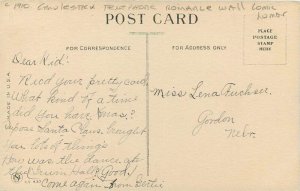 C 1910 TELEPHONE ROMANCE WALL
POST CARD
FOR CORRESPONDENCE
FOR ADDRESS ONLY
PLACE
POSTAGE
STAMP
HERE
MADE IN U.S.A.
Dear Kid:
Rec'd your pretty card.
What kind of a time
did you have Xmas?
Suppose Santa Claus brought
you lots of things
How was the dance at
the Drum Hall? Good!
Come again. From Gertie
Miss Lena
Gordon
Nebr.